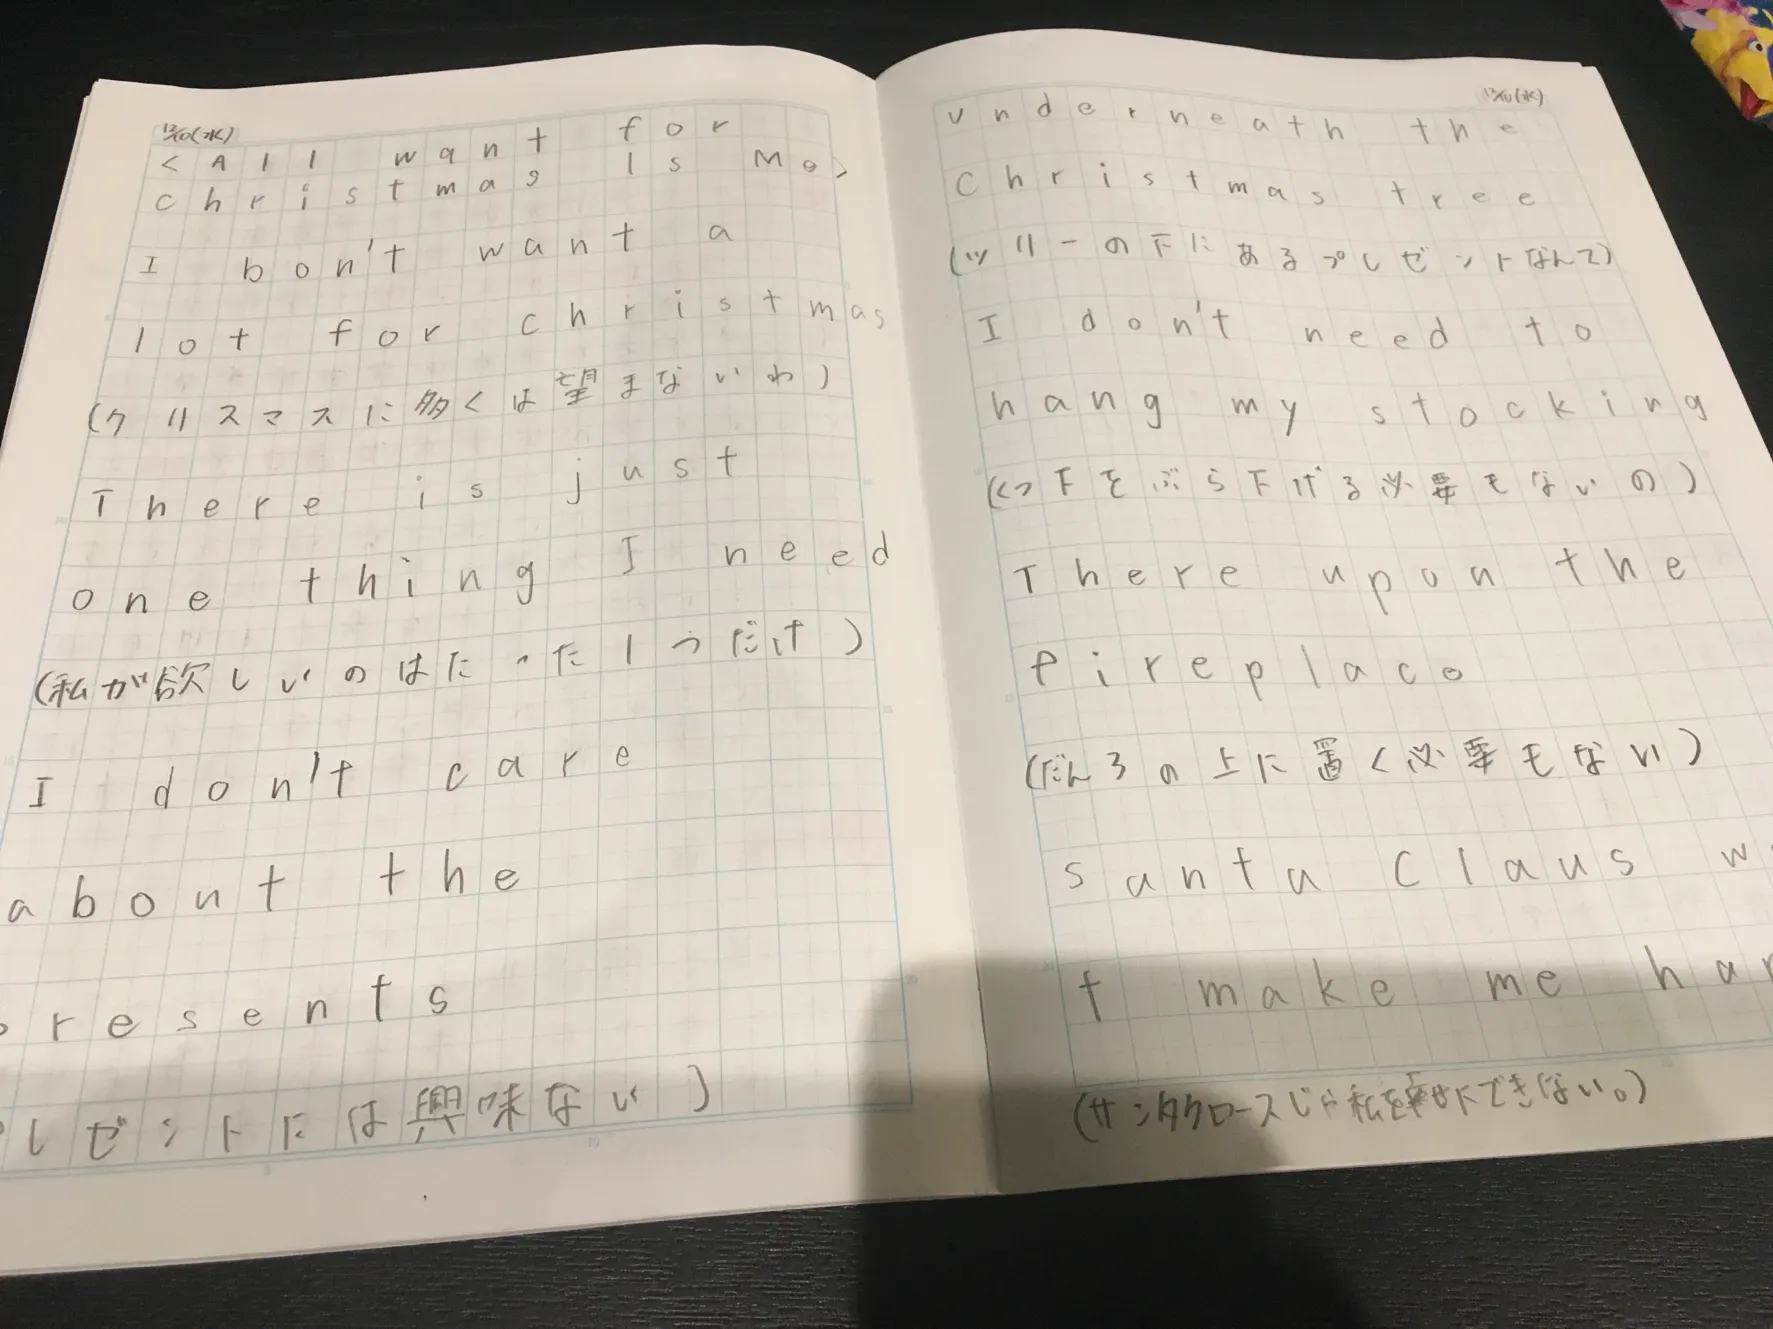 12/10(水)
<All want for
christmas Is Me>
I bon't want a
lot for christmas
(クリスマスに多くは望まないわ)
There is just
one thing I need
(私が欲しいのはたった1つだけ)
I don't care
about the
presents
プレゼントには興味ない)
12/10(水)
underneath the
Christmas tree
(ツリーの下にあるプレゼントなんて)
I don't need to
hang my stocking
(くつ下をぶら下げる必要もないの)
There upon the
fireplace
(だんろの上に置く必要もない)
santa Claus w
t make me hap
(サンタクロースじゃ私を幸せにできない。)